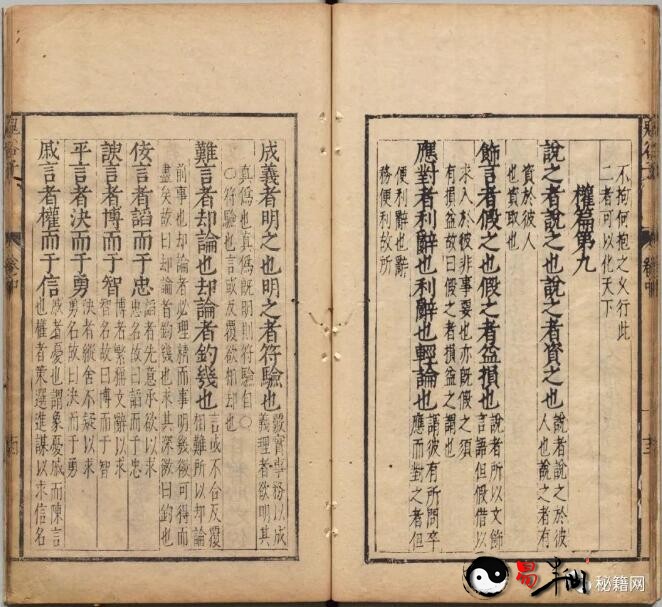 不拘何抱之义行此
二者可以化天下
權篇第九
說之者說之也說之者資之也
說者說之於彼
人也說之者有
資於彼人
也資取也
飾言者假之也假之者益損也
說者所以文飾
言語但假借以
求入於彼非事要也亦旣假之須
有損益故曰假之者損益之謂也
應對者利辭也利辭也輕論也
謂彼有所問卒
應而對之者但
便利辭也辭
務便利故所
成義者明之也明之者符驗也
覈實事務以成
義理者欲明其
真偽也真偽旣明則符驗自○
○符驗也言或反覆欲相却也
難言者却論也却論者釣幾也
言或不合反覆
相難所以却論
前事也却論者必理精而事明幾微可得而
盡矣故曰却論者釣幾也求其深微曰釣也
佞言者諂而于忠
諂者先意承欲以求
忠名故曰諂而于忠
諛言者博而于智
博者繁稱文辭以求
智名故曰博而于智
平言者決而于勇
決者縱舍不疑以求
勇名故曰決而于勇
戚言者權而于信
戚者憂也謂象憂戚而陳言
也權者策選進謀以求信名
秘籍网